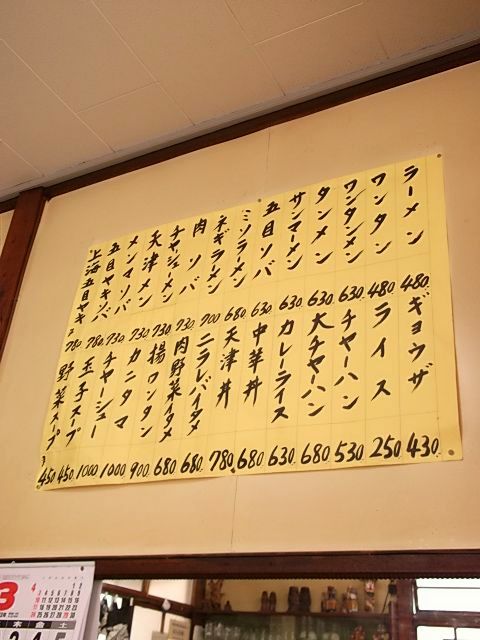 ラーメン 480
ワンタン 480
ワンタンメン 630
タンメン 630
サンマーメン 630
五目ソバ 630
ミソラーメン 680
ネギラーメン 700
肉ソバ 730
チャシュメン 730
天津メン 730
メンマソバ 730
五目ヤキソバ 780
上海五目ヤキ 780
ギョウザ 430
ライス 250
チャーハン 530
大チャーハン 680
カレーライス 630
中華丼 680
天津丼 780
ニラレバイタメ 680
肉野菜イタメ 680
揚ワンタン 900
カニタマ 1000
チャーシュー 1000
玉子スープ 450
野菜スープ 450
3
4
木 金 土